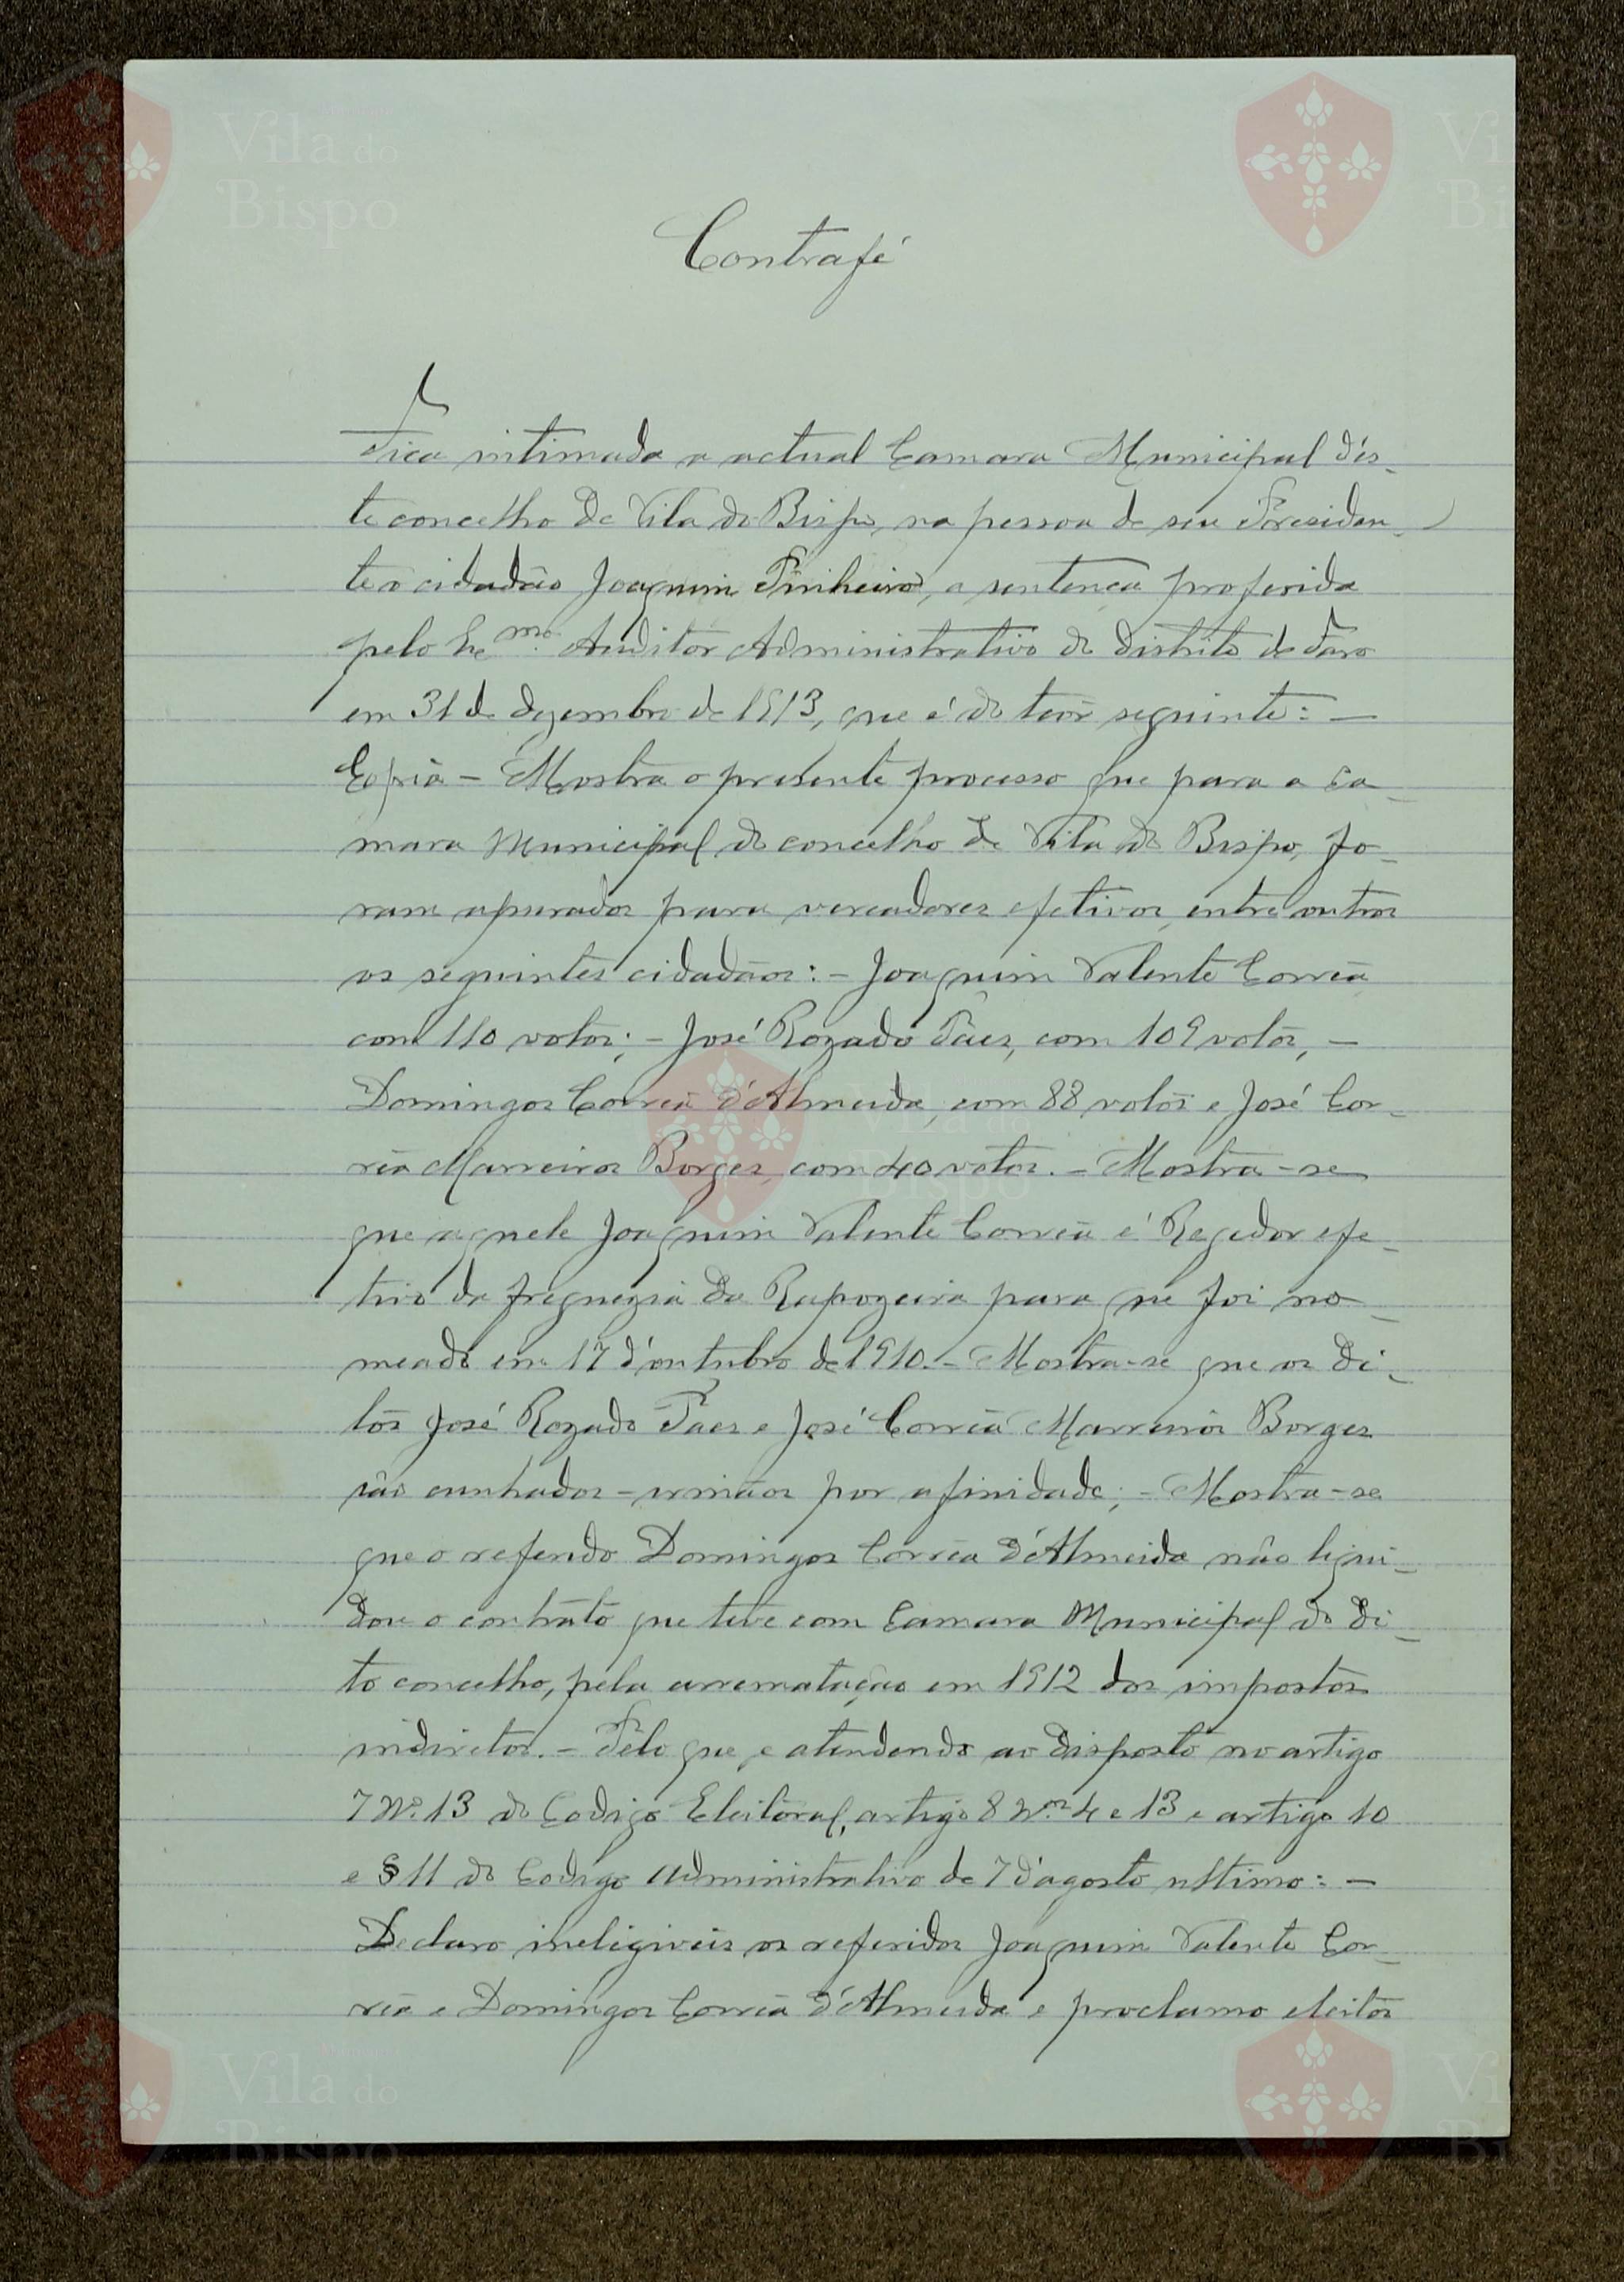 Contrafé
Fica intimada a actual Camara Municipal dês-
te concelho de Vila do Bispo, na pessoa de seu Presiden-
te o cidadão Joaquim Pinheiro, a sentença proferida
pelo Ex.mo Auditor Administrativo do distrito de Faro
em 31 de dezembro de 1913, que é do teôr seguinte: —
Copia — Mostra o presente processo que para a Ca-
mara Municipal do concelho de Vila do Bispo, fo-
ram apurados para vereadores efetivos, entre outros
os seguintes cidadãos: — Joaquim Valente Corrêa
com 110 votos; — José Rozado Páes, com 109 votos, —
Domingos Corrêa d'Almeida, com 88 votos e José Cor-
rêa Marreiros Borges, com 40 votos. — Mostra-se
que aquele Joaquim Valente Corrêa é Regedor efe-
tivo da freguezia da Rapozeira para que foi no-
meado em 17 d'outubro de 1910. — Mostra-se que os di-
tos José Rozado Paes e José Corrêa Marreiros Borges
são cunhados — irmãos por afinidade; — Mostra-se
que o referido Domingos Corrêa d'Almeida não liqui-
dou o contrato que teve com Camara Municipal do di-
to concelho, pela arrematação em 1912 dos impostos
indiretos. — Pelo que, e atendendo ao disposto no artigo
7 Nº. 13 do Codigo Eleitoral, artigo 8 Nos. 4 e 13 e artigo 10
e § 11 do Codigo Administrativo de 7 d'agosto ultimo: —
Declaro ineligiveis os referidos Joaquim Valente Cor-
rêa e Domingos Corrêa d'Almeida e proclamo eleitos
Vila do
Bispo
Vila do
Bispo
Vila do
Bispo
Vila do
Bispo
Vila do
Bispo